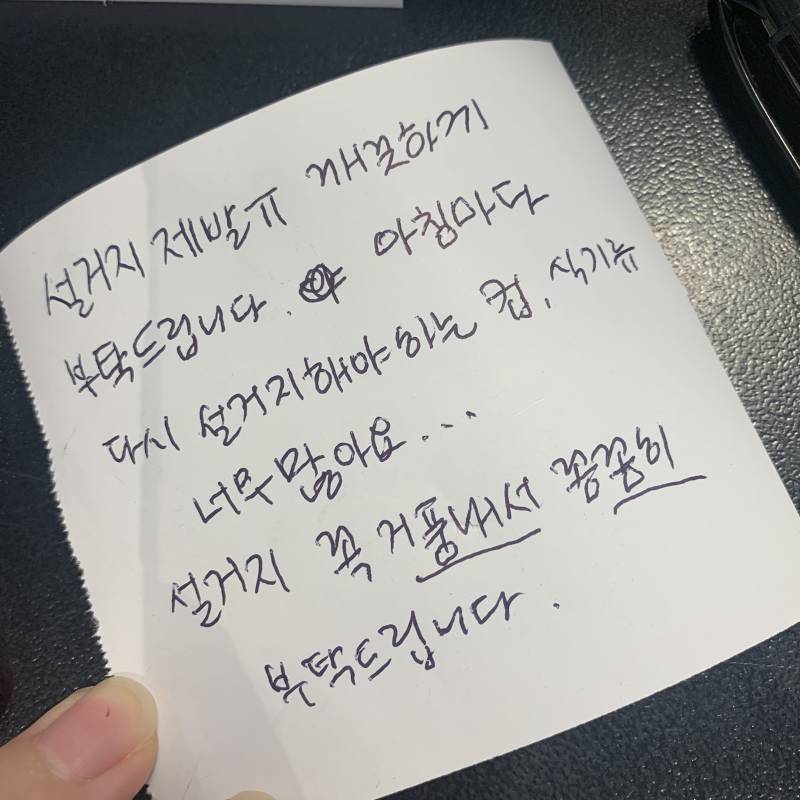 설거지 제발ㅠ 깨끗하게
부탁드립니다. 아침마다
다시 설거지해야하는 컵, 식기류
너무 많아요...
설거지 꼭 거품내서 꼼꼼히
부탁드립니다.